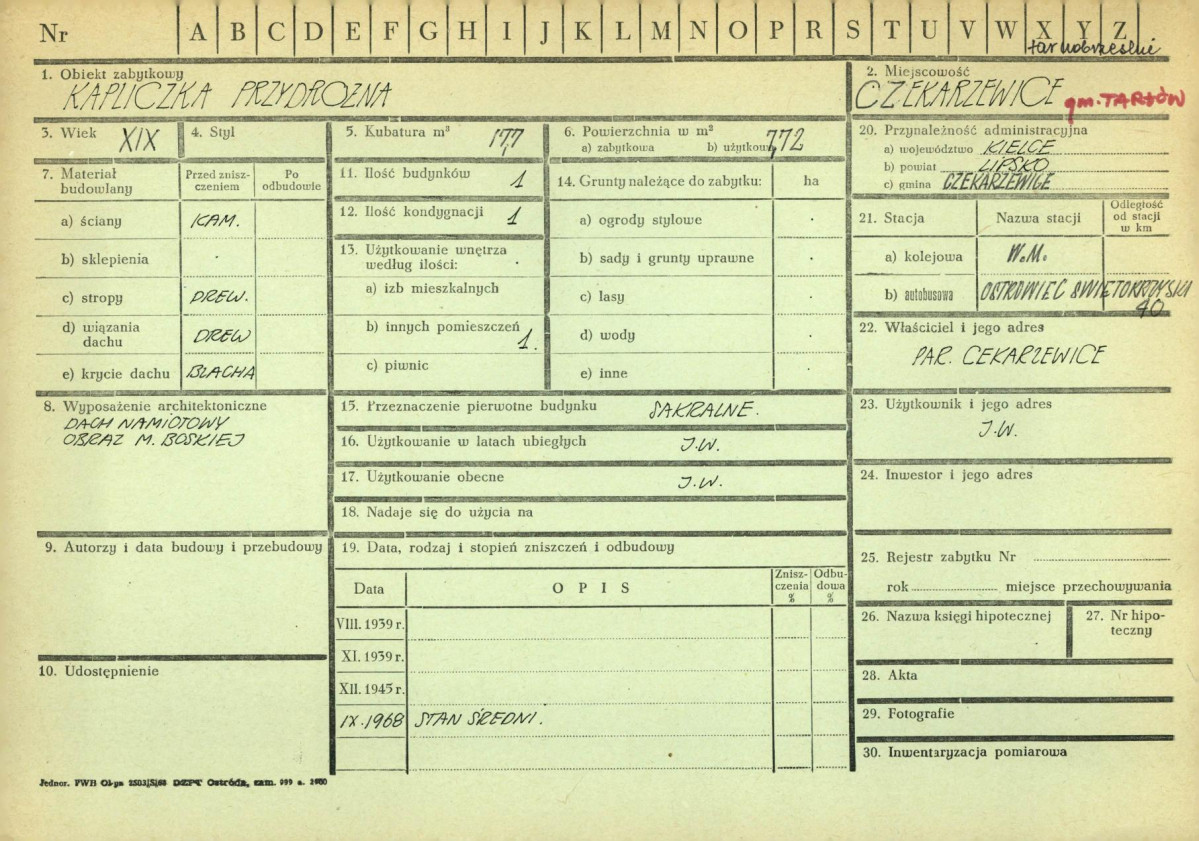 Nr A B C D E F G H I J K L M N O P R S T U V W X Y Z
tarnobrzeskie
1. Obiekt zabytkowy
KAPLICZKA PRZYDROŻNA
2. Miejscowość
CZEKARZEWICE gm. TARŁÓW
3. Wiek XIX
4. Styl
5. Kubatura m³ 17,7
6. Powierzchnia w m²
a) zabytkowa b) użytkow 7,72
7. Materiał budowlany
Przed zniszczeniem
Po odbudowie
a) ściany KAM.
b) sklepienia .
c) stropy DREW.
d) wiązania dachu DREW
e) krycie dachu BLACHA
8. Wyposażenie architektoniczne
DACH NAMIOTOWY
OBRAZ M. BOSKIEJ
9. Autorzy i data budowy i przebudowy
10. Udostępnienie
11. Ilość budynków 1
12. Ilość kondygnacji 1
13. Użytkowanie wnętrza
według ilości: .
a) izb mieszkalnych
b) innych pomieszczeń 1.
c) piwnic
14. Grunty należące do zabytku: ha
a) ogrody stylowe .
b) sady i grunty uprawne .
c) lasy .
d) wody .
e) inne .
15. Przeznaczenie pierwotne budynku SAKRALNE.
16. Użytkowanie w latach ubiegłych J.W.
17. Użytkowanie obecne J.W.
18. Nadaje się do użycia na
19. Data, rodzaj i stopień zniszczeń i odbudowy
Data OPIS Zniszczenia % Odbudowa %
VIII. 1939 r.
XI. 1939 r.
XII. 1945 r.
IX. 1968 STAN ŚREDNI.
20. Przynależność administracyjna
a) województwo KIELCE
b) powiat LIPSKO
c) gmina CZEKARZEWICE
21. Stacja Nazwa stacji Odległość od stacji w km
a) kolejowa W.M.
b) autobusowa OSTROWIEC ŚWIĘTOKRZYSKI
40
22. Właściciel i jego adres
PAR. CEKARZEWICE
23. Użytkownik i jego adres
J.W.
24. Inwestor i jego adres
25. Rejestr zabytku Nr
rok miejsce przechowywania
26. Nazwa księgi hipotecznej
27. Nr hipoteczny
28. Akta
29. Fotografie
30. Inwentaryzacja pomiarowa
Jednor. PWH